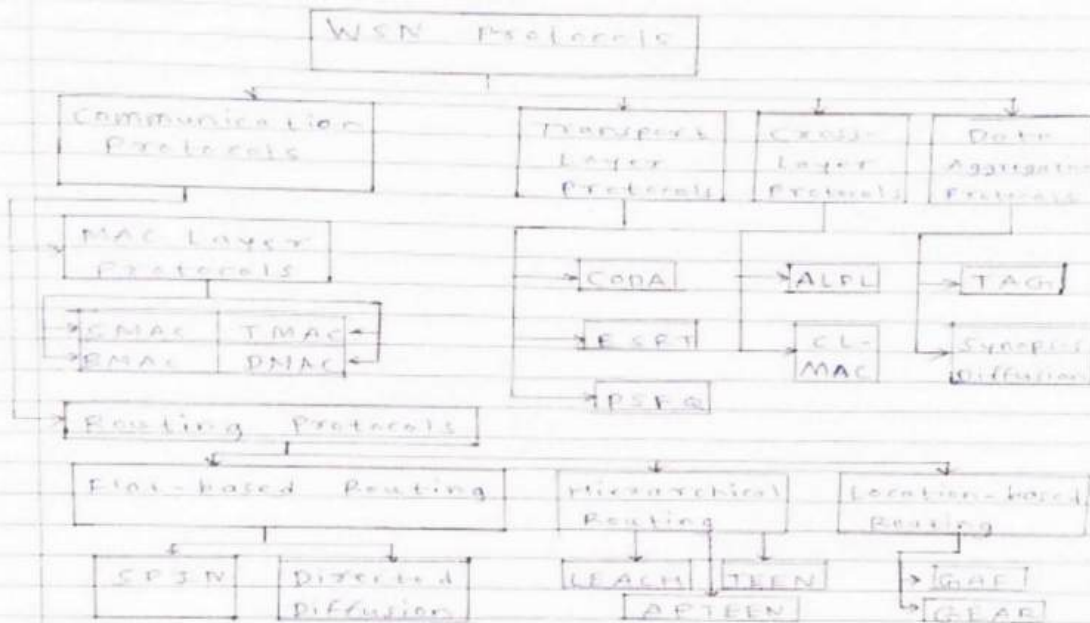 WSN Protocols
Communication
Protocols
Transport
Layer
Protocols
Cross-
Layer
Protocols
Data
Aggregation
Protocols
MAC Layer
Protocols
SMAC
TMAC
BMAC
DMAC
CODA
ESRT
PSFQ
ALPL
CL-
MAC
TAG
Synopsis
Diffusion
Routing Protocols
Flat-based Routing
Hierarchical
Routing
Location-based
Routing
SPIN
Directed
Diffusion
LEACH
TEEN
APTEEN
GAF
GEAR